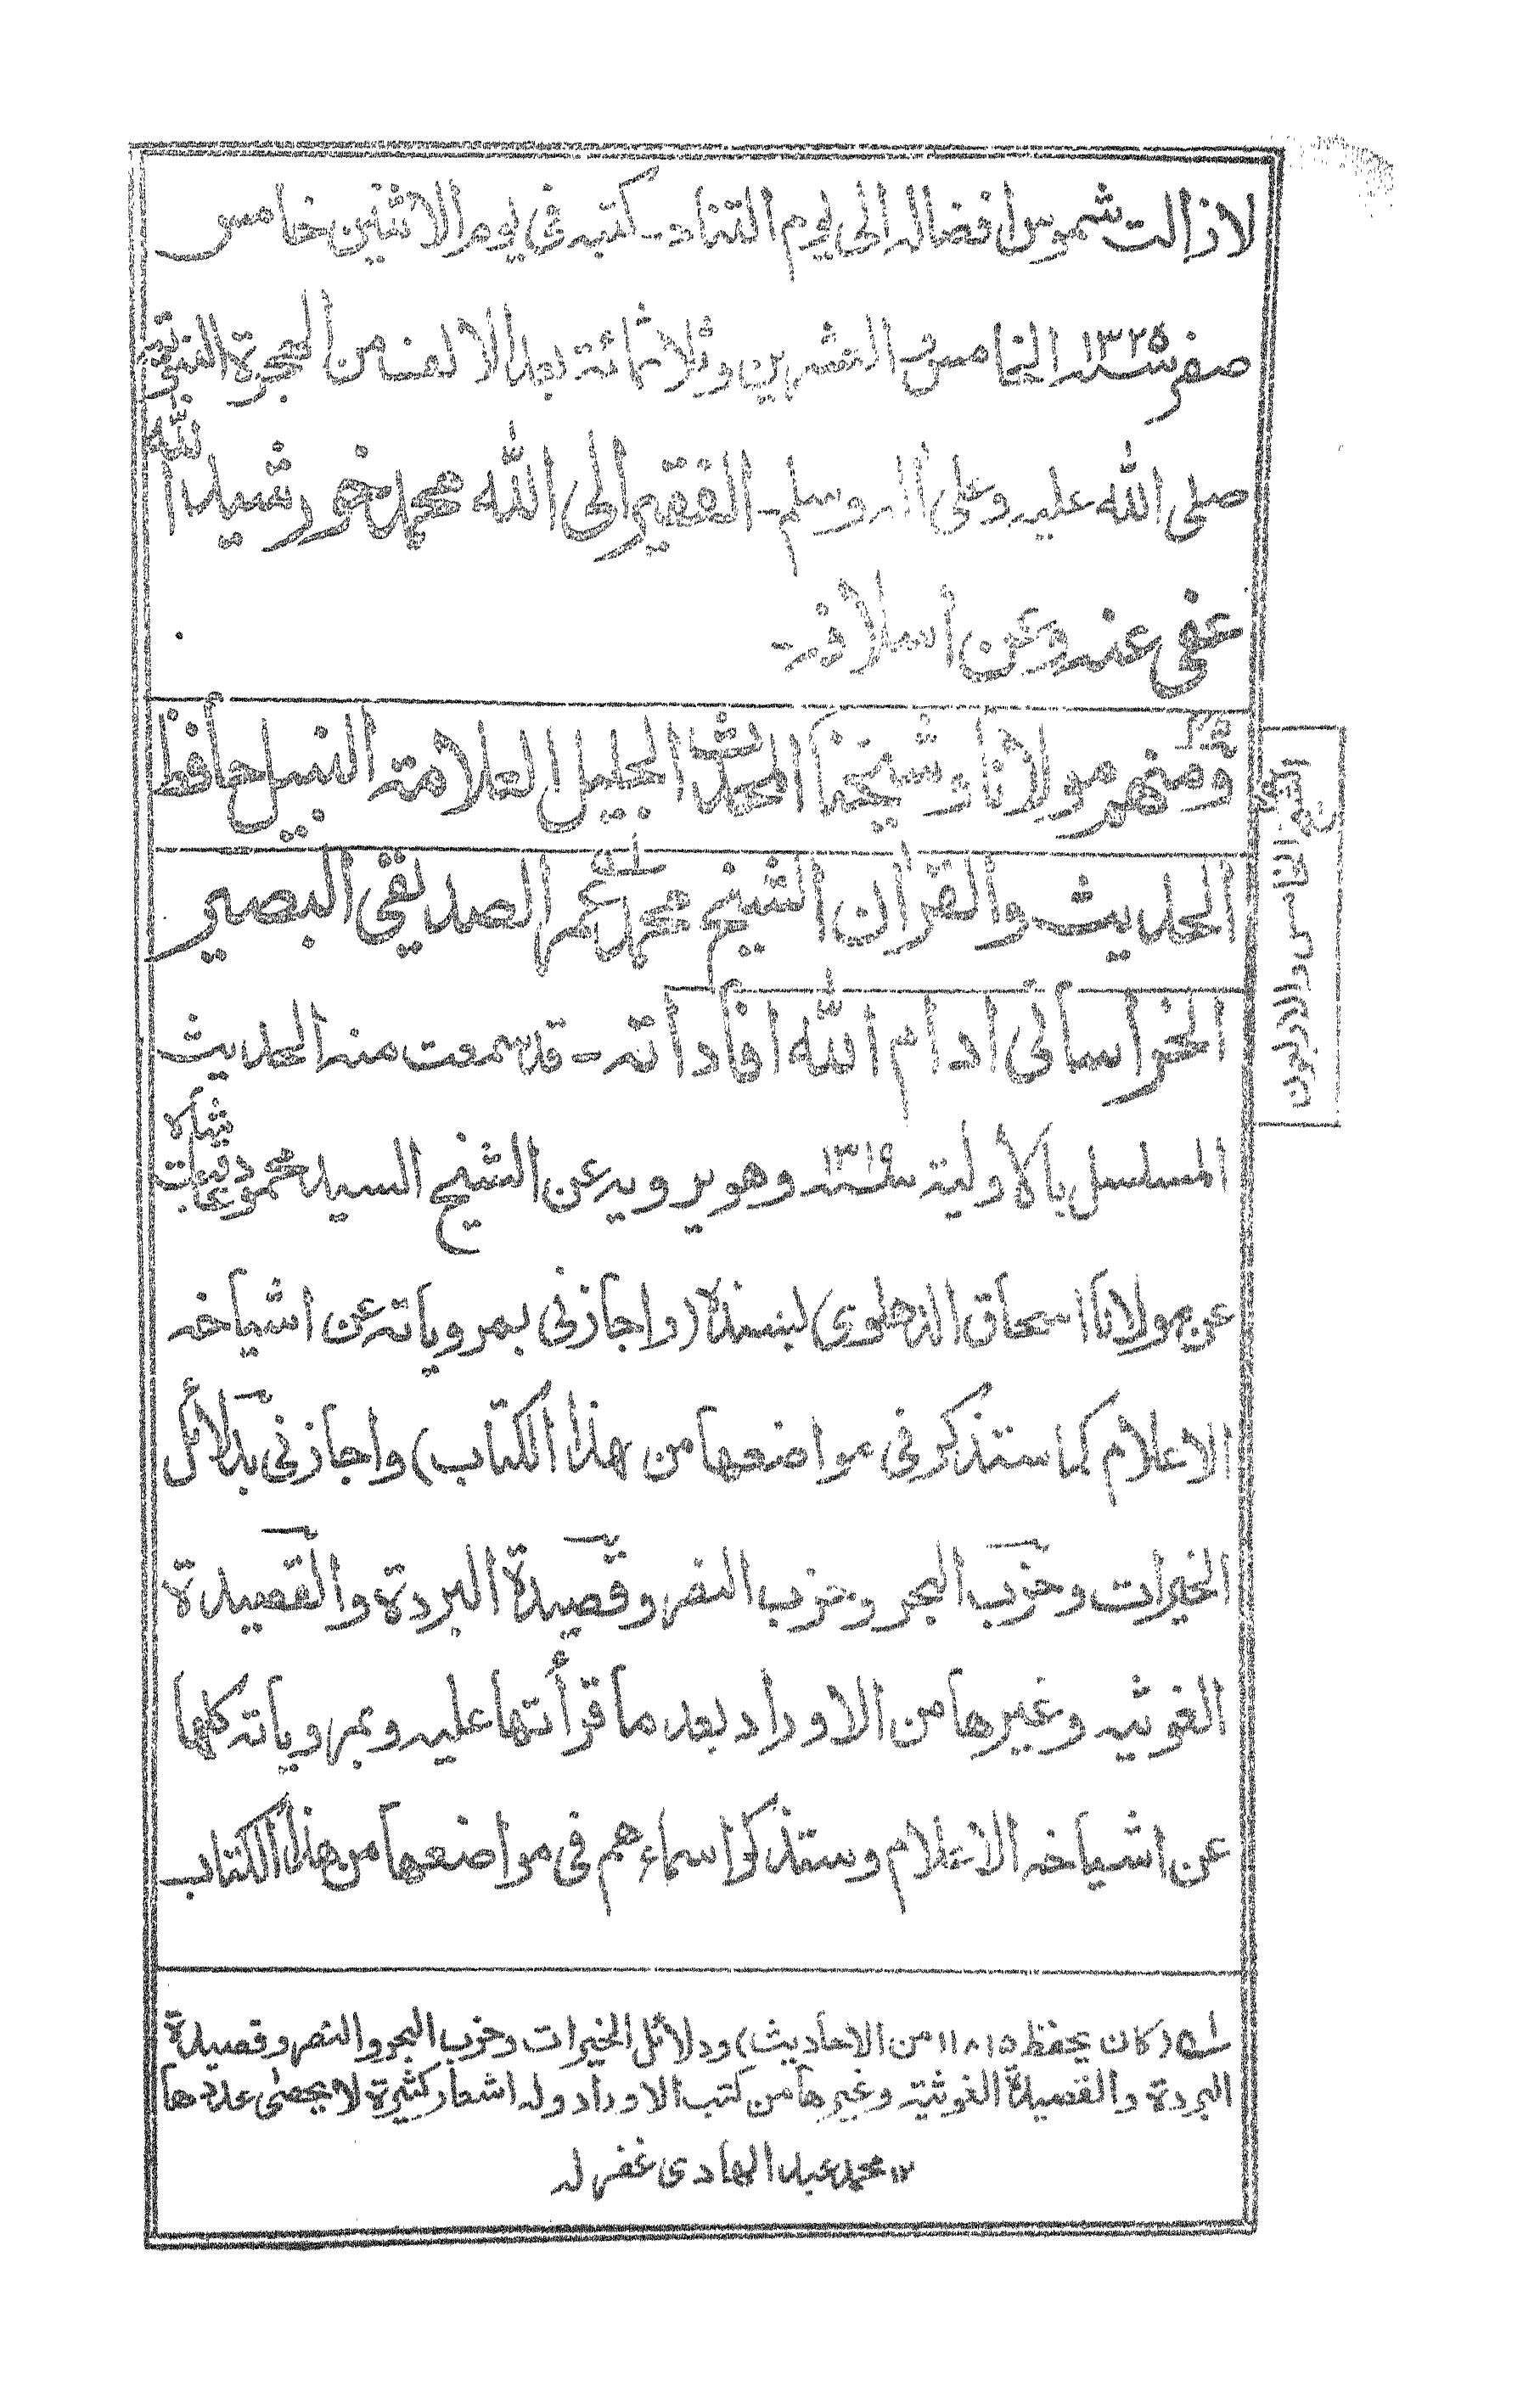 لازالت شموس افضاله الى يوم التناد۔ كتبه فى يوم الاثنين خامس
صفر سنه ١٣٢٥ الخامس والعشرين وثلاثمائة بعد الالف من الهجرة النبوية
صلى الله عليه وعلى اله وسلم۔ الفقير الى الله محمد خورشيد الله
عفى عنه وعن اسلافه
ومنهم مولانا وشيخنا المحدث الجليل العلامة النبيل حافظ
الحديث والقران الشيخ محمد عمر الصديقى البصير
الخراسانى ادام الله افاداته۔ قد سمعت منه الحديث
المسلسل بالأولية سنه ١٣١٩ وهو يرويه عن الشيخ السيد محمود
عن مولانا اسحاق الدهلوى) بسنده (واجازنى بمروياته عن اشياخه
الاعلام كما ستذكر فى مواضعها من هذا الكتاب) واجازنى بدلائل
الخيرات وحزب البحر وحزب النصر وقصيدة البردة والقصيدة
الغوثيه وغيرها من الاوراد بعد ما قرأتها عليه وبمروياته كلها
عن اشياخه الاعلام وستذكر اسماءهم فى مواضعها من هذا الكتاب
الخامس والاربعون
له (كان يحفظ ١١٨١٥ من الاحاديث) ودلائل الخيرات وحزب البحر والنصر وقصيدة
البردة والقصيدة الغوثية وغيرها من كتب الاوراد وله اشعار كثيرة لا يحصى عددها
١٢ محمد عبد الهادى غفرله